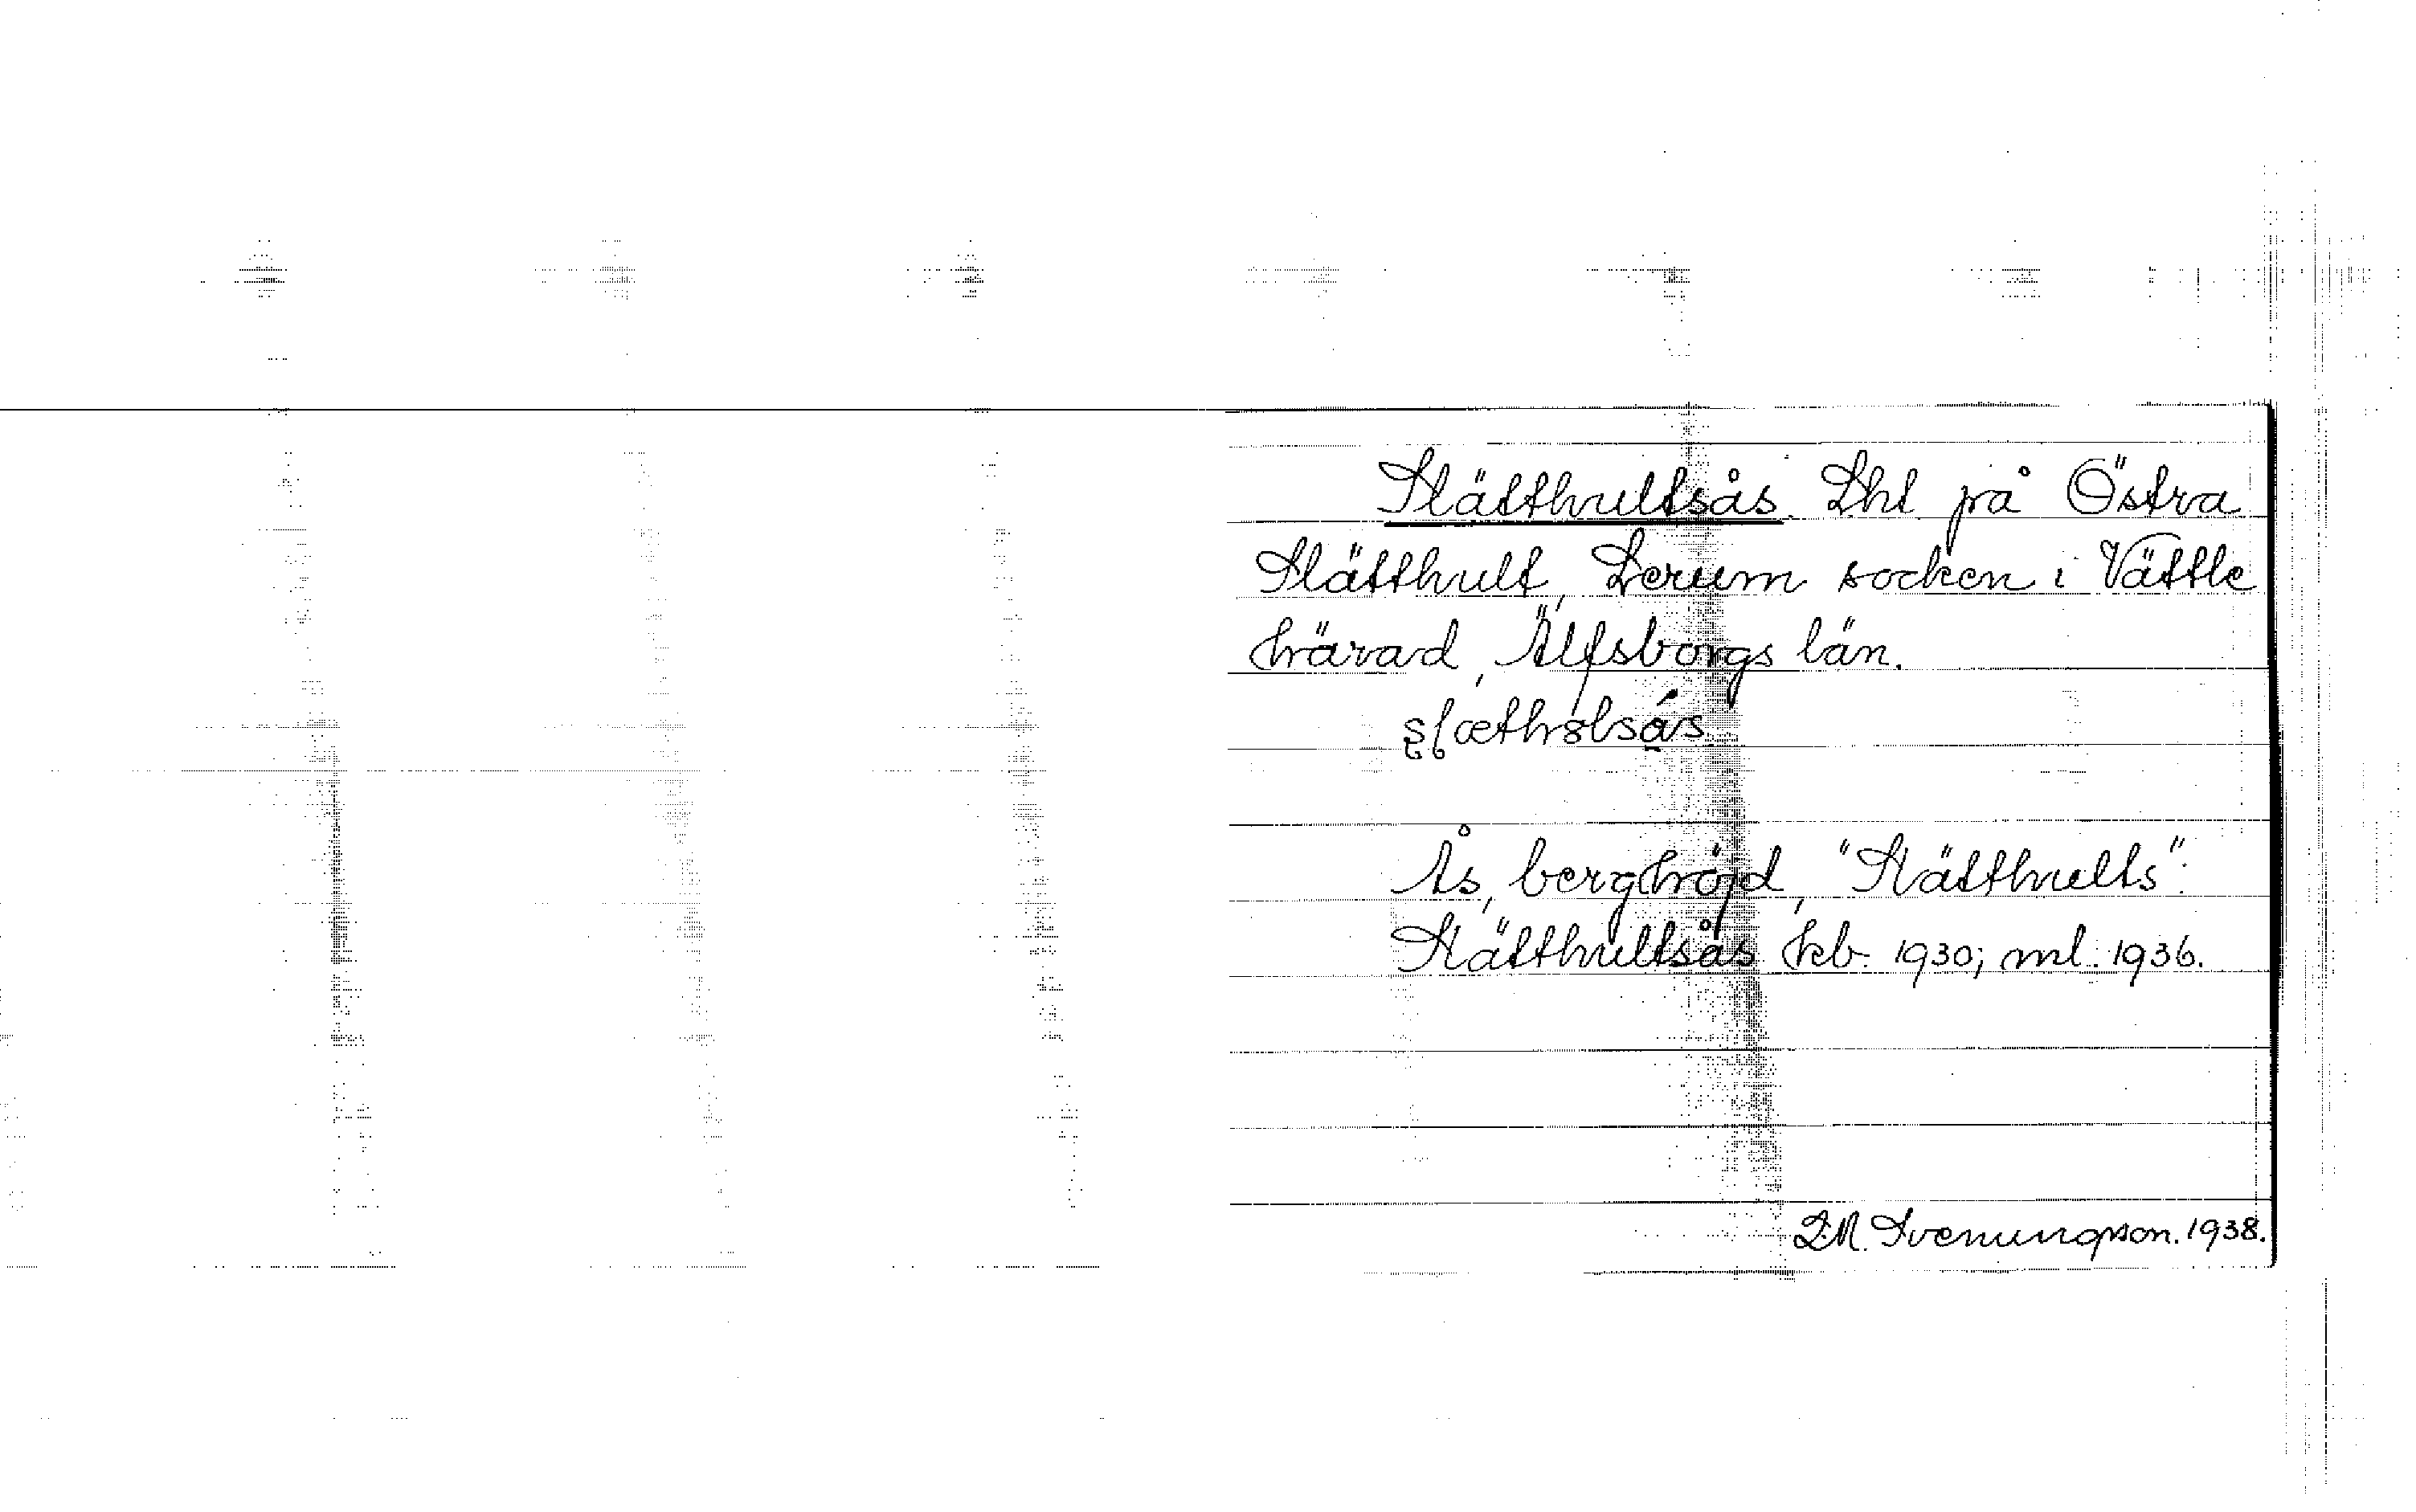 Slätthultsås. Lht på Östra
Slätthult, Lerum socken i Vättle
härad, Älfsborgs län.
Ås, berghöjd, "Slätthults".
Slätthultsås hb. 1930; ml. 1936.
Svenungsson. 1938.